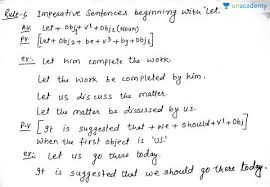 unacademy
Rule-6 Imperative Sentences beginning with 'Let.
AV. Let + Obj1 + V1 + Obj2 (Noun)
PV. [Let + Obj2 + be + V3 + by + Obj1]
ex:- Let him complete the work.
Let the work be completed by him.
Let us discuss the matter.
Let the matter be discussed by us.
P.V [It is suggested that + we + should + V1 + Obj]
When the first object is 'US'.
ex:- Let us go there today.
It is suggested that we should go there today.